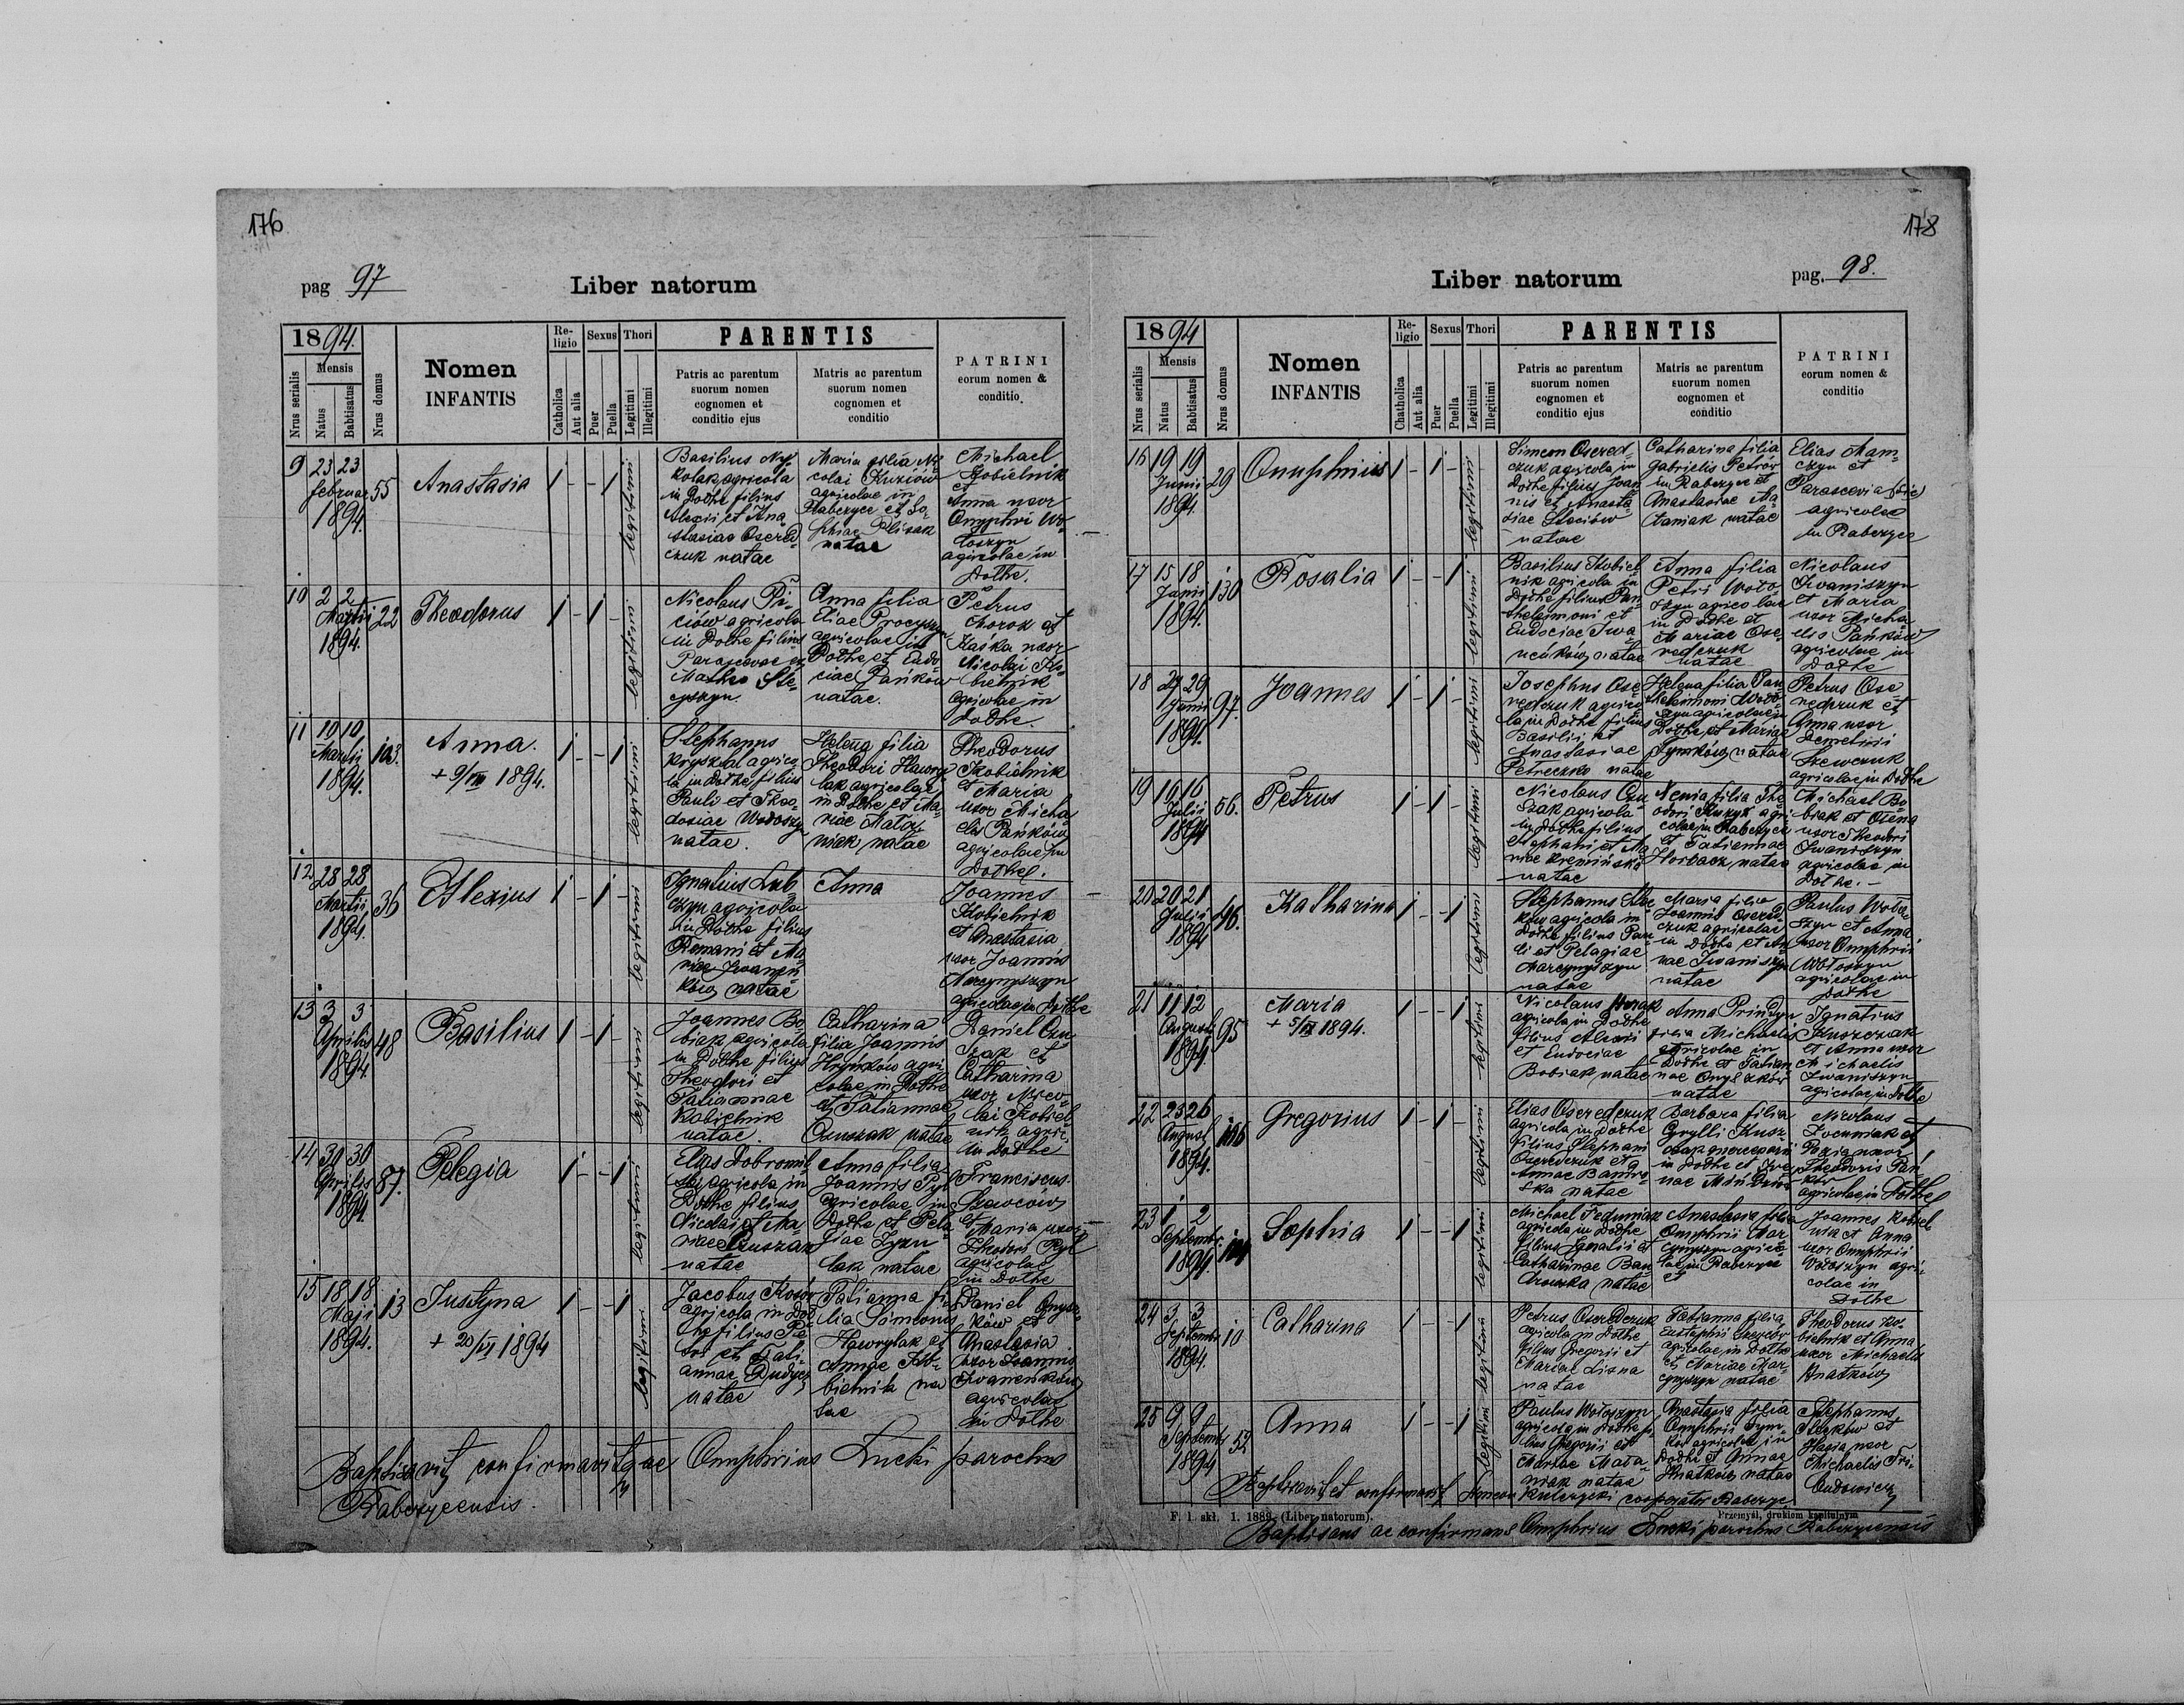 176
pag 97
Liber natorum
1894.
Nrus serialis
Mensis
Natus
Babtisatus
Nrus domus
Nomen
INFANTIS
Re-
ligio
Catholica
Aut alia
Sexus
Puer
Puella
Thori
Legitimi
Illegitimi
PARENTIS
Patris ac parentum
suorum nomen
cognomen et
conditio ejus
Matris ac parentum
suorum nomen
cognomen et
conditio
PATRINI
eorum nomen &
conditio
9
23 23
februar
1894.
55
Anastasia
1 - - 1
legitimi
Basilius
agricola
in Dołhe filius
Alexii et Ana
stasiae Osered
czuk natae
Maria filia Ni
colai Kuziów
agricolae in
Raberyce et So-
phiae
natae
Michael
Kobielnik
et
Anna uxor
Onuphri Wo-
łoszyn
agricolae in
Dołhe.
10
2 2
Martii
1894.
22
Theodorus
1 - 1 -
legitimi
Nicolaus
ciów agricola
in Dołhe filius
Anna filia
Eliae
agricolae in
Dołhe et Eudo
ciae Pańków
natae.
Petrus
et
Kaśka uxor
Nicolai Ko
bielnik
agricolae in
Dołhe.
11
10 10
Martii
1894.
103.
Anna.
+ 9/VII 1894.
1 - - 1
legitimi
Stephanus
agrico
la in Dołhe filius
Pauli et Theo-
dosiae Wołoszyn
natae.
Helena filia
Theodori Hawry
lak agricolae
in Dołhe et Ma-
riae Mata
niak natae
Theodorus
Kobielnik
et Maria
uxor Micha
elis Pańków
agricolae in
Dołhe.
12
28 28
Martii
1894.
36
Alexius
1 - 1 -
legitimi
Ignatius
agricola
in Dołhe filius
Romani et Ma
riae Iwaneń
ków natae
Anna
Joannes
Kobielnik
et Anastasia
uxor Joannis
Marcynyszyn
agricolae in Dołhe
13
3 3
Aprilis
1894.
48
Basilius
1 - 1 -
legitimi
Joannes Bo-
biak agricola
in Dołhe filius
Theodori et
Tatiannae
Kobielnik
natae.
Catharina
filia Joannis
Hryńków agri
colae in Dołhe
et Tatiannae
natae
Daniel
et
Catharina
uxor Nico-
lai Kobiel
nik agri.
in Dołhe
14
30 30
Aprilis
1894
87.
Pelegia
1 - - 1
legitimi
Elias Dobromil
ski agricola in
Dołhe filius
Nicolai et Ma
riae
natae
Anna filia
Joannis Pyl
agricolae in
Dołhe et Pela
giae
lak natae
Franciscus
Szewców
et
Maria uxor
Theodori Pyl
agricolae
in Dołhe
15
18 18
Maji
1894.
13
Justyna
+ 20/VI 1894
1 - - 1
legitimi
Jacobus
agricola in Doł
he filius Pe
tri et Tati-
annae Dudycz
natae
Tatianna fi-
lia Simeonis
Hawrylak et
Annae Ko-
bielnik na
tae
Daniel Onysz
ków et
Anastasia
uxor Joannis
Iwaneńków
agricolae
in Dołhe
Baptisavit confirmavitque Onuphrius Łucki parochus
Raberycensis.
178
Liber natorum
pag. 98.
1894
Nrus serialis
Mensis
Natus
Babtisatus
Nrus domus
Nomen
INFANTIS
Re-
ligio
Chatholica
Aut alia
Sexus
Puer
Puella
Thori
Legitimi
Illegitimi
PARENTIS
Patris ac parentum
suorum nomen
cognomen et
conditio ejus
Matris ac parentum
suorum nomen
cognomen et
conditio
PATRINI
eorum nomen &
conditio
16
19 19
Junii
1894.
29
Onuphrius
1 - 1 -
legitimi
Simeon Osered-
czuk agricola in
Dołhe filius Joan
nis et Anasta
siae Steciów
natae
Catharina filia
Gabrielis Petrów
in Raberyce et
Anastasiae Ma
taniak natae
Elias Mam-
czyn et
Parascevia
agricolae
in Raberyce
17
15 18
Junii
1894.
130
Rosalia
1 - - 1
legitimi
Basilius Kobiel
nik agricola in
Dołhe filius Pan
theleimoni et
Eudociae Iwa
neńków natae
Anna filia
Petri Woło-
szyn agricolae
in Dołhe et
Mariae Ose-
redczuk
natae
Nicolaus
Iwaniszyn
et Maria
uxor Micha
elis Pańków
agricolae in
Dołhe
18
27 29
Junii
1894.
97.
Joannes
1 - 1 -
legitimi
Josephus Ose-
redczuk agrico
la in Dołhe filius
Basilii et
Anastasiae
Petreczko natae
Helena filia Pan
theleimoni Woło-
szyn agricolae in
Dołhe et Mariae
Tymków natae
Petrus Ose-
redczuk et
Anna uxor
Demetrii
Szewczuk
agricolae in Dołhe
19
16 16
Julii
1894
56.
Petrus
1 - 1 -
legitimi
Nicolaus
agricola
in Dołhe filius
Stephani et Ma
riae
natae
Xenia filia The
odori agri
colae in Raberyce
et Tatiannae
Horbacz natae
Michael Bo-
biak et Oxena
uxor Theodori
Iwaniszyn
agricolae in
Dołhe. -
20
20 21
Julii
1894
Katharina
1 - - 1
legitimi
Stephanus
agricola in
Dołhe filius Pau
li et Pelagiae
Marcynyszyn
natae
Maria filia
Joannis Osered
czuk agricolae
in Dołhe et An
nae Iwaniszyn
natae
Paulus Woło
szyn et Anna
uxor Onuphrii
Wołoszyn
agricolae in
Dołhe
21
11 12
Augusti
1894.
95
Maria
+ 5/IX 1894.
1 - - 1
legitimi
Nicolaus
agricola in Dołhe
filius Alexii
et Eudociae
Bobiak natae
Anna
filia Michaelis
agricolae in
Dołhe et Tatian
nae Onyszków
natae
Ignatius
et Anna uxor
Michaelis
Iwaniszyn
agricolae in Dołhe
22
25 26
August
1894.
106
Gregorius
1 - 1 -
legitimi
Elias Oseredczuk
agricola in Dołhe
filius Stephani
Oseredczuk et
Annae
natae
Barbara filia
Cyrilli
in Dołhe et
Nicolaus
et
uxor
Theodoris Pań
ków
agricolae in Dołhe
23
1 2
Septembr.
1894.
104
Sophia
1 - - 1
legitimi
Michael Feduniak
agricola in Dołhe
filius Ignatii et
Catharinae
natae
Anastasia filia
Onuphrii Mar
cynyszyn agrico
lae in Raberyce
et
Joannes Kobiel
nik et Anna
uxor Onuphrii
Wołoszyn agri-
colae in
Dołhe
24
3 3
Septembr
1894.
10
Catharina
1 - - 1
legitimi
Petrus Oseredczuk
agricola in Dołhe
filius Gregorii et
Mariae
natae
Tatianna filia
Eustaphii
agricolae in Dołhe
et Mariae Mar-
cynyszyn natae
Theodorus Ko-
bielnik et Anna
uxor Michaelis
Hnatków
25
9 9
Septembr
1894
52
Anna
1 - - 1
legitimi
Paulus Wołoszyn
agricola in Dołhe fi
lius Gregorii et
Mariae Mata-
niak natae
Anastasia filia
Onuphrii Tym-
ków agricolae in
Dołhe et Annae
Hnatków natae
Stephanus
et
uxor
Michaelis
Baptisavit et confirmavit Simeon cooperator Raberyc
F. 1. skł. 1. 1889. (Liber natorum).
Przemyśl, drukiem kapitulnym
Baptisans ac confirmans Onuphrius Łucki parochus Raberycensis